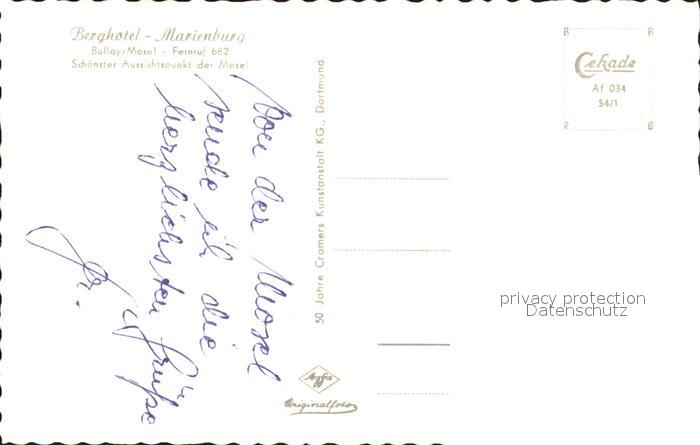 Berghotel - Marienburg
Bullay/Mosel - Fernruf 682
Schönster Aussichtspunkt der Mosel
Von der Mosel
sende ich die
herzlichsten Grüße
Fr.
50 Jahre Cramers Kunstanstalt KG., Dortmund
Agfa
Originalfoto
B B
Cekade
Af 034
54/1
R B
privacy protection
Datenschutz